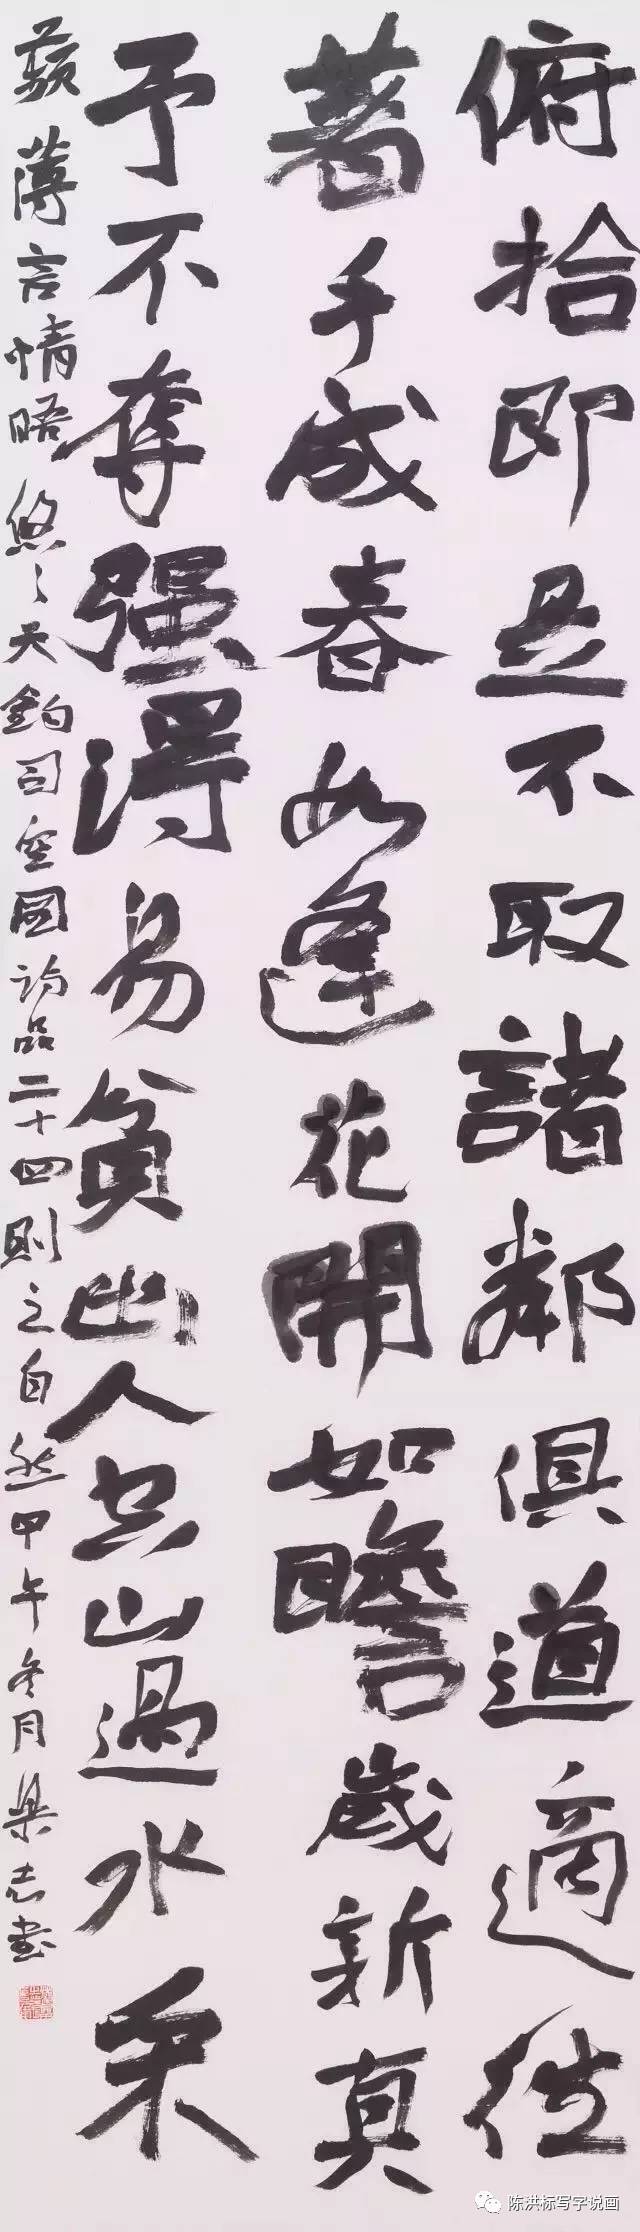 俯拾即是不取諸鄰俱道適往
著手成春如逢花開如瞻歲新真
予不奪强得易貧幽人空山過水采
蘋薄言情晤悠々天鈞司空圖詩品二十四則之自然甲午冬月志書
陈洪标写字说画